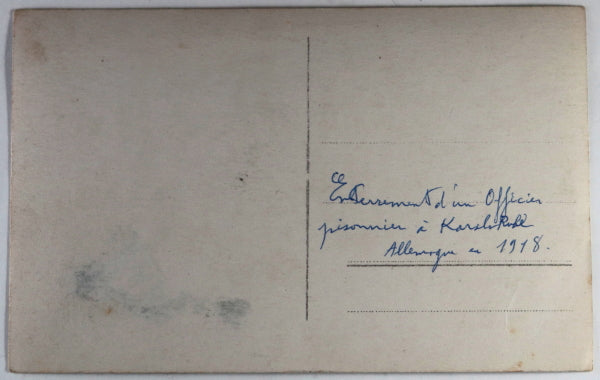 Enterrement d'un Officier
pisonnier à Karslruhe
Allemagne en 1918.